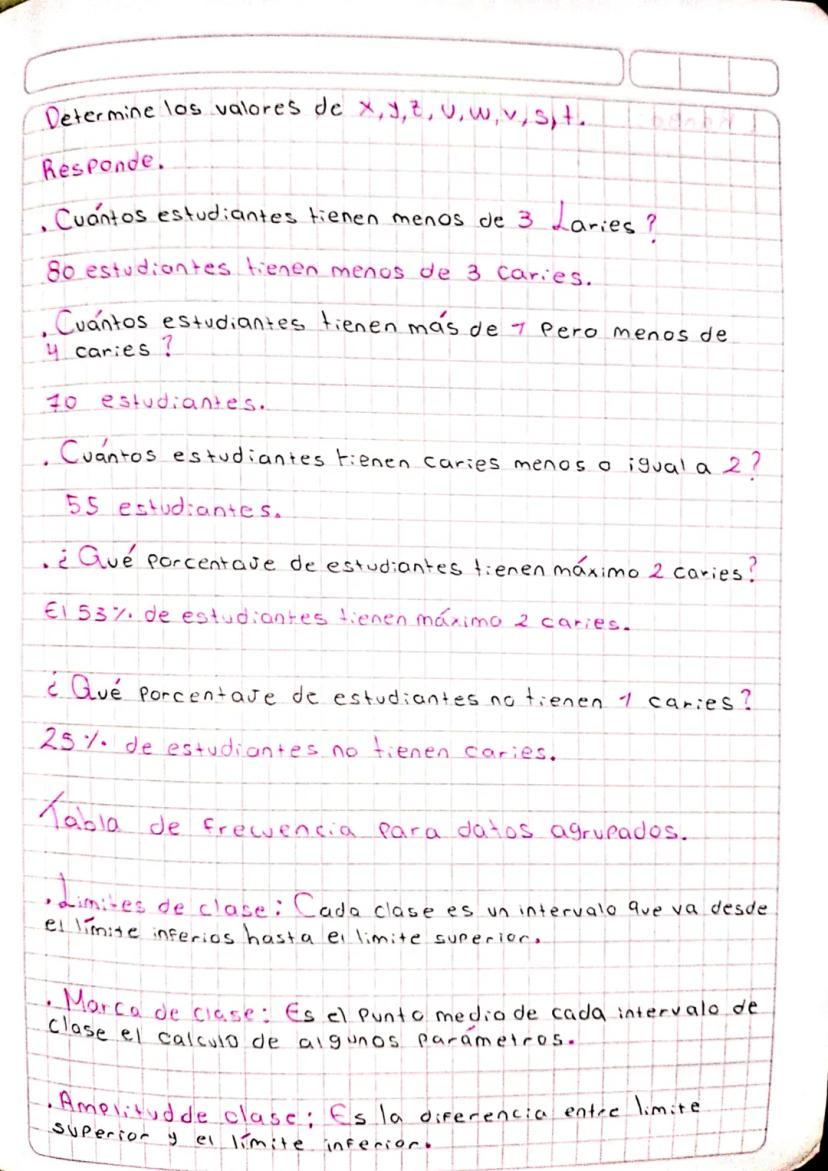 Determine los valores de x, y, z, u, w, v, s, t.
Responde.
. Cuántos estudiantes tienen menos de 3 Laries?
80 estudiantes tienen menos de 3 caries.
. Cuántos estudiantes tienen más de 1 Pero menos de
4 caries?
70 estudiantes.
. Cuántos estudiantes tienen caries menos o igual a 2?
55 estudiantes.
. ¿Qué porcentaje de estudiantes tienen máximo 2 caries?
El 53%. de estudiantes tienen máximo 2 caries.
¿Qué porcentaje de estudiantes no tienen 1 caries?
25%. de estudiantes no tienen caries.
Tabla de frecuencia para datos agrupados.
. Limites de clase: Cada clase es un intervalo que va desde
el límite inferios hasta el limite superior.
. Marca de clase: Es el punto medio de cada intervalo de
clase el calculo de algunos parámetros.
. Amplitud de clase: Es la diferencia entre limite
superior y el límite inferior.